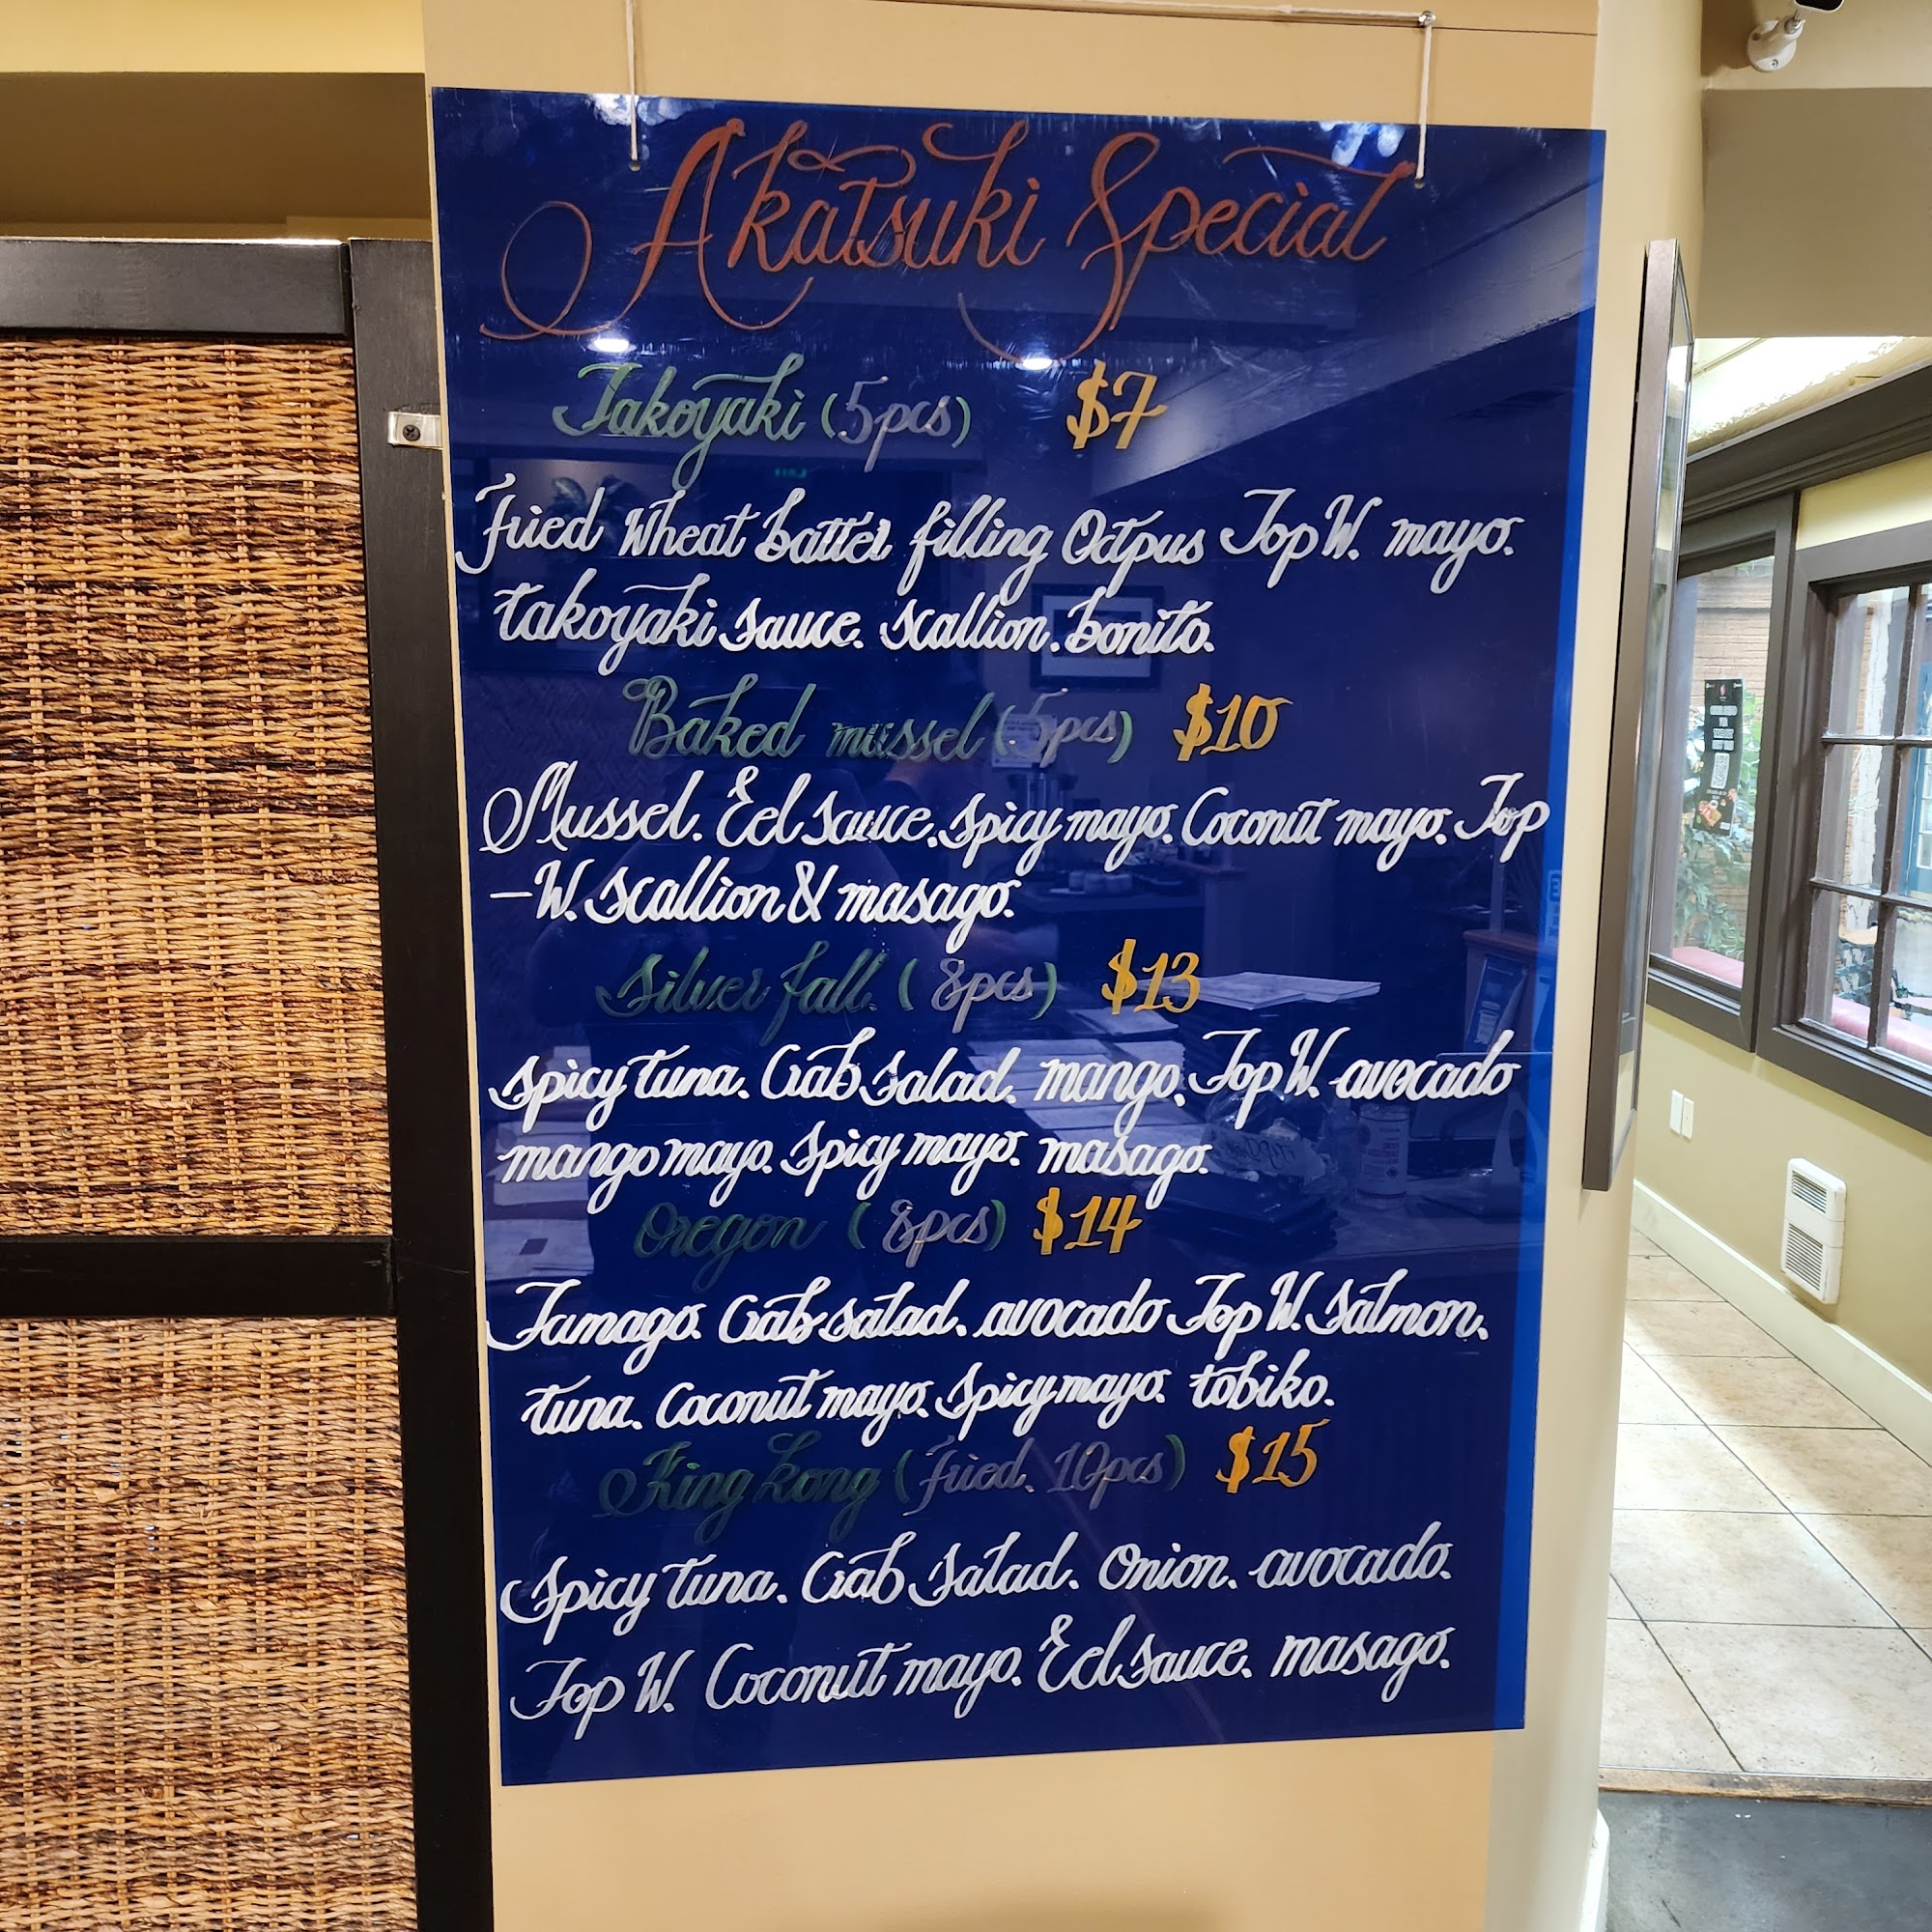 Akatsuki Special
Takoyaki (5pcs) $7
Fried Wheat batter filling Octpus Top W. mayo.
takoyaki sauce. scallion. bonito.
Baked mussel (5pcs) $10
Mussel. Eel sauce. spicy mayo. Coconut mayo. Top
-W. scallion & masago.
Silver fall. (8pcs) $13
spicy tuna. Crab salad. mango. Top W. avocado
mango mayo. Spicy mayo. masago.
Oregon (8pcs) $14
Tamago. Crab salad. avocado Top W. Salmon.
tuna. Coconut mayo. Spicy mayo. tobiko.
King kong (fried. 10pcs) $15
Spicy tuna. Crab Salad. Onion. avocado.
Top W. Coconut mayo. Eel sauce. masago.